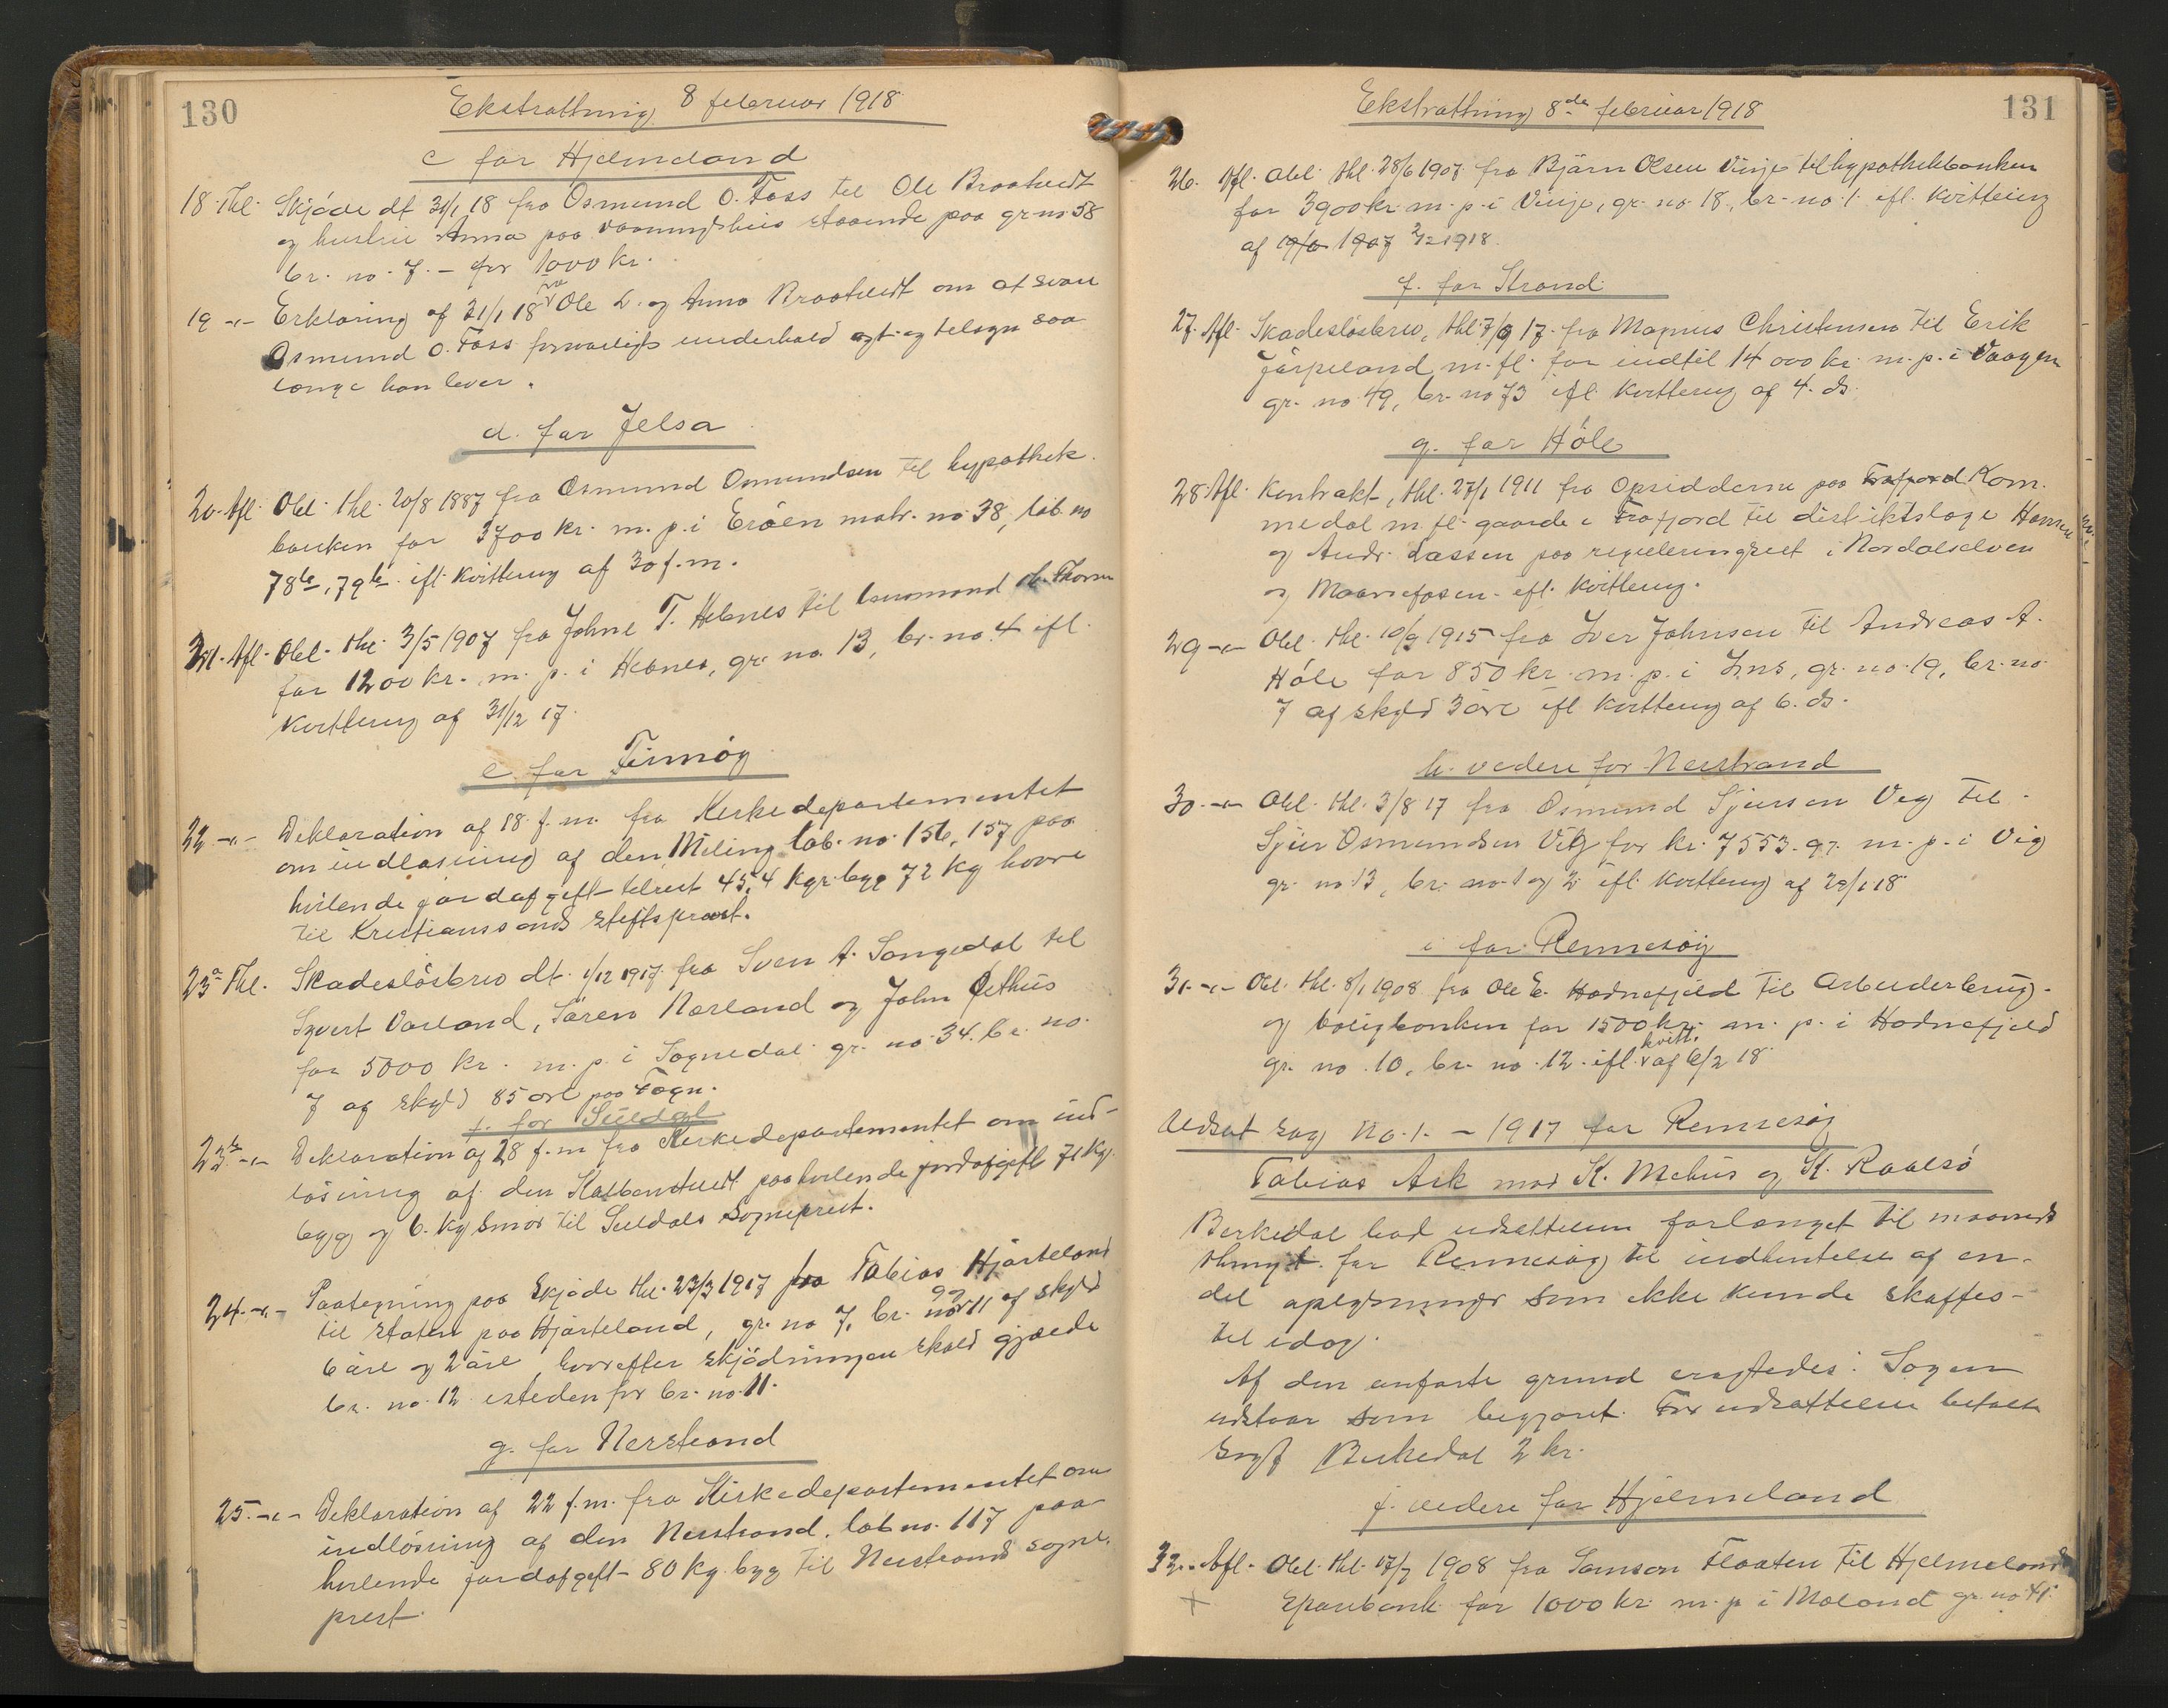 130
Ekstratting 8 februar 1918
c for Hjelmeland
18. Thl. Skjøde dt 31/1 18 fra Osmund O. Foss til Ole Braatvedt
og hustru Anna paa vaaningshus staaende paa gr. no 58
br. no. 7. – for 1000 kr.
19 -"- Erklæring af 21/1 18 fra Ole L. og Anna Braatvedt om at svare
Osmund O. Foss forsvarligt underhold røgt og tilsyn saa
længe han lever.
d. for Jelsa
20. Afl. Obl. thl. 20/8 1887 fra Osmund Osmundsen til hypothek
banken for 3700 kr. m. p. i Erøen matr. no 38, løb. no
78b, 79b ifl. kvittering af 30 f. m.
21. Afl. Obl. thl. 3/5 1907 fra Johne T. Hebnes til
for 1200 kr. m. p. i Hebnes, gr. no. 13, br. no. 4 ifl.
kvittering af 31/12 17.
e for Finnøy
22 -"- Deklaration af 18 f. m. fra Kirkedepartementet
om indløsning af den Meling løb. no. 156, 157 paa
hvilende jordafgift tilrest 45,4 kgr. byg 72 kg havre
til Kristianssands stiftsprost.
23a Thl. Skadesløsbrev dt. 1/12 1917 fra Sven A. Sangedal til
Syvert Varland, Søren Norland og John Øethus
for 5000 kr. m. p. i Sognedal gr. no 34. br. no.
7 af skyld 85 øre paa Fogn.
f. for Suldal
23b -"- Deklaration af 28 f. m fra Kirkedepartementet om ind-
løsning af den Kalbentvedt paahvilende jordafgift 71 kg.
byg og 6. kg smør til Suldals sogneprest.
24. -"- Paategning paa skjøde thl. 23/3 1917 fra Tobias Hjorteland
til staten paa Hjorteland, gr. no 7, br. no 9 og 11 af skyld
6 øre og 2 øre, hvorefter skjødningen skal gjælde
br. no. 12 isteden for br. no. 11.
g. for Nerstrand
25. -"- Deklaration af 22 f. m. fra Kirkedepartementet om
indløsning af den Nerstrand, løb no. 117 paa
hvilende jordafgift – 80 kg. byg til Nerstrands sogne-
prest.
131
Ekstratting 8de februar 1918
26. Afl. Obl. thl. 28/6 1907 fra Bjørn Olsen Vinje til hypothekbanken
for 3900 kr. m. p. i Vinje, gr. no. 18, br. no. 1. ifl. kvittering
af 19/6 1907 2/2 1918.
f. for Strand
27. Afl. Skadesløsbrev, thl. 7/9 17. fra Magnus Christensen til Erik
Jørpeland m. fl. for indtil 14 000 kr. m. p. i Vaagen
gr. no 49, br. no 73 ifl. kvittering af 4. ds.
g. for Høle
28. Afl. Kontrakt, thl. 27/1 1911 fra opsidderne paa Frafjord Kom-
medal m. fl. gaarde i Frafjord til distriktslæge Hansen
og Andr. Lassen paa reguleringsret i Nordalselven
og Maanefosen. ifl. kvittering.
29 -"- Obl. thl. 10/9 1915 fra Iver Johnsen til Andreas A.
Høle for 850 kr. m. p. i Ims, gr. no. 19, br. no.
7 af skyld 3 øre ifl kvittering af 6. ds.
h. videre for Nerstrand
30. -"- Obl. thl. 3/8 17 fra Osmund Sjursen Veg til
Sjur Osmundsen Veg for kr. 7553.97. m. p. i Veg
gr. no. 13, br. no. 1 og 2 ifl. kvittering af 29/1 18
i for Rennesøy
31. -"- Obl. thl. 8/1 1908 fra Ole E. Hodnefjeld til Arbeiderbrug-
og boligbanken for 1500 kr. m. p. i Hodnefjeld
gr. no. 10, br. no. 12. ifl. kvitt. af 6/2 18.
Udsat sag No. 1. – 1917 for Rennesøy
Tobias Ask mod K. Mehus og K. Raalsø
Berkedal bad udsættelsen forlænget til maaneds
thinget for Rennesøy til indhentelse af en-
del oplysninger som ikke kunde skaffes
til idag.
Af den anførte grund eragtedes: Sagen
udstaar som begjæret. For udsættelsen betalte
sagf Berkedal 2 kr.
j. videre for Hjelmeland
32. Afl. Obl. thl. 17/7 1908 fra Samson Flaaten til Hjelmelands
x Sparebank for 1000 kr. m. p i Moland gr. no. 41.